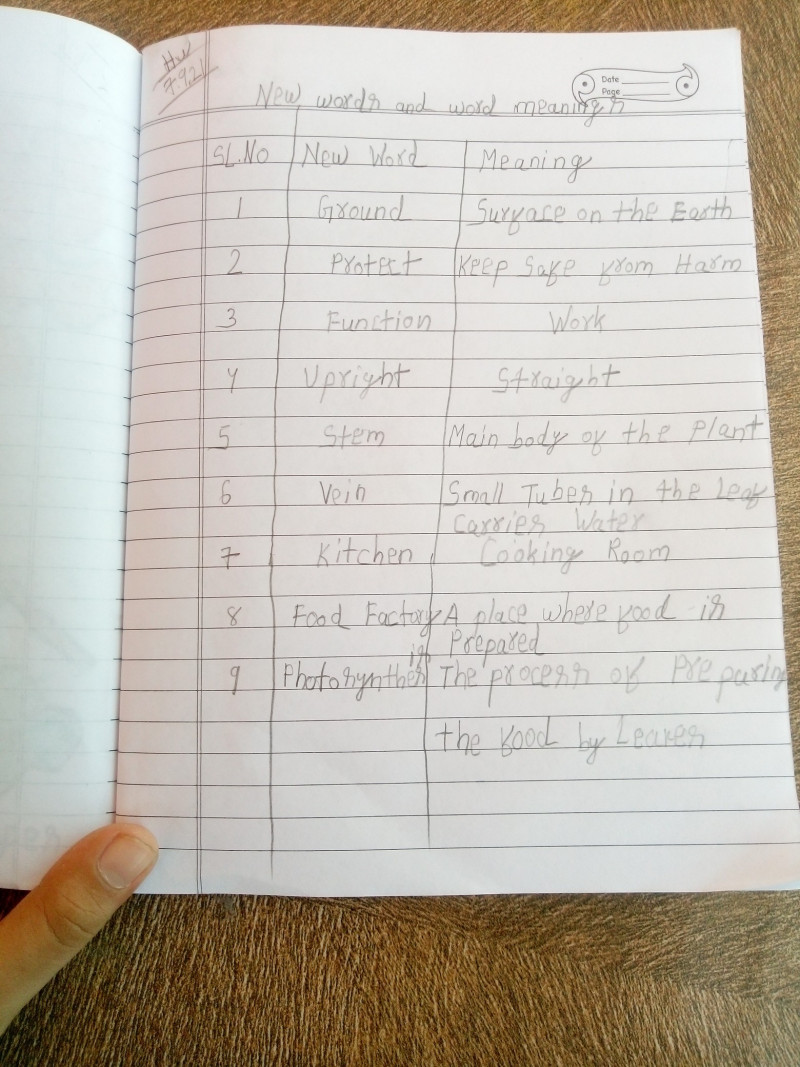 HW
7.9.21
Date
Page
New words and word meanings
SL.No New Word Meaning
1 Ground Surface on the Earth
2 Protect Keep Safe from Harm
3 Function Work
4 Upright Straight
5 Stem Main body of the Plant
6 Vein Small Tubes in the Leaf
carries Water
7 Kitchen Cooking Room
8 Food Factory A place where food is
Prepared
9 Photosynthesis The process of Preparing
the food by Leaves